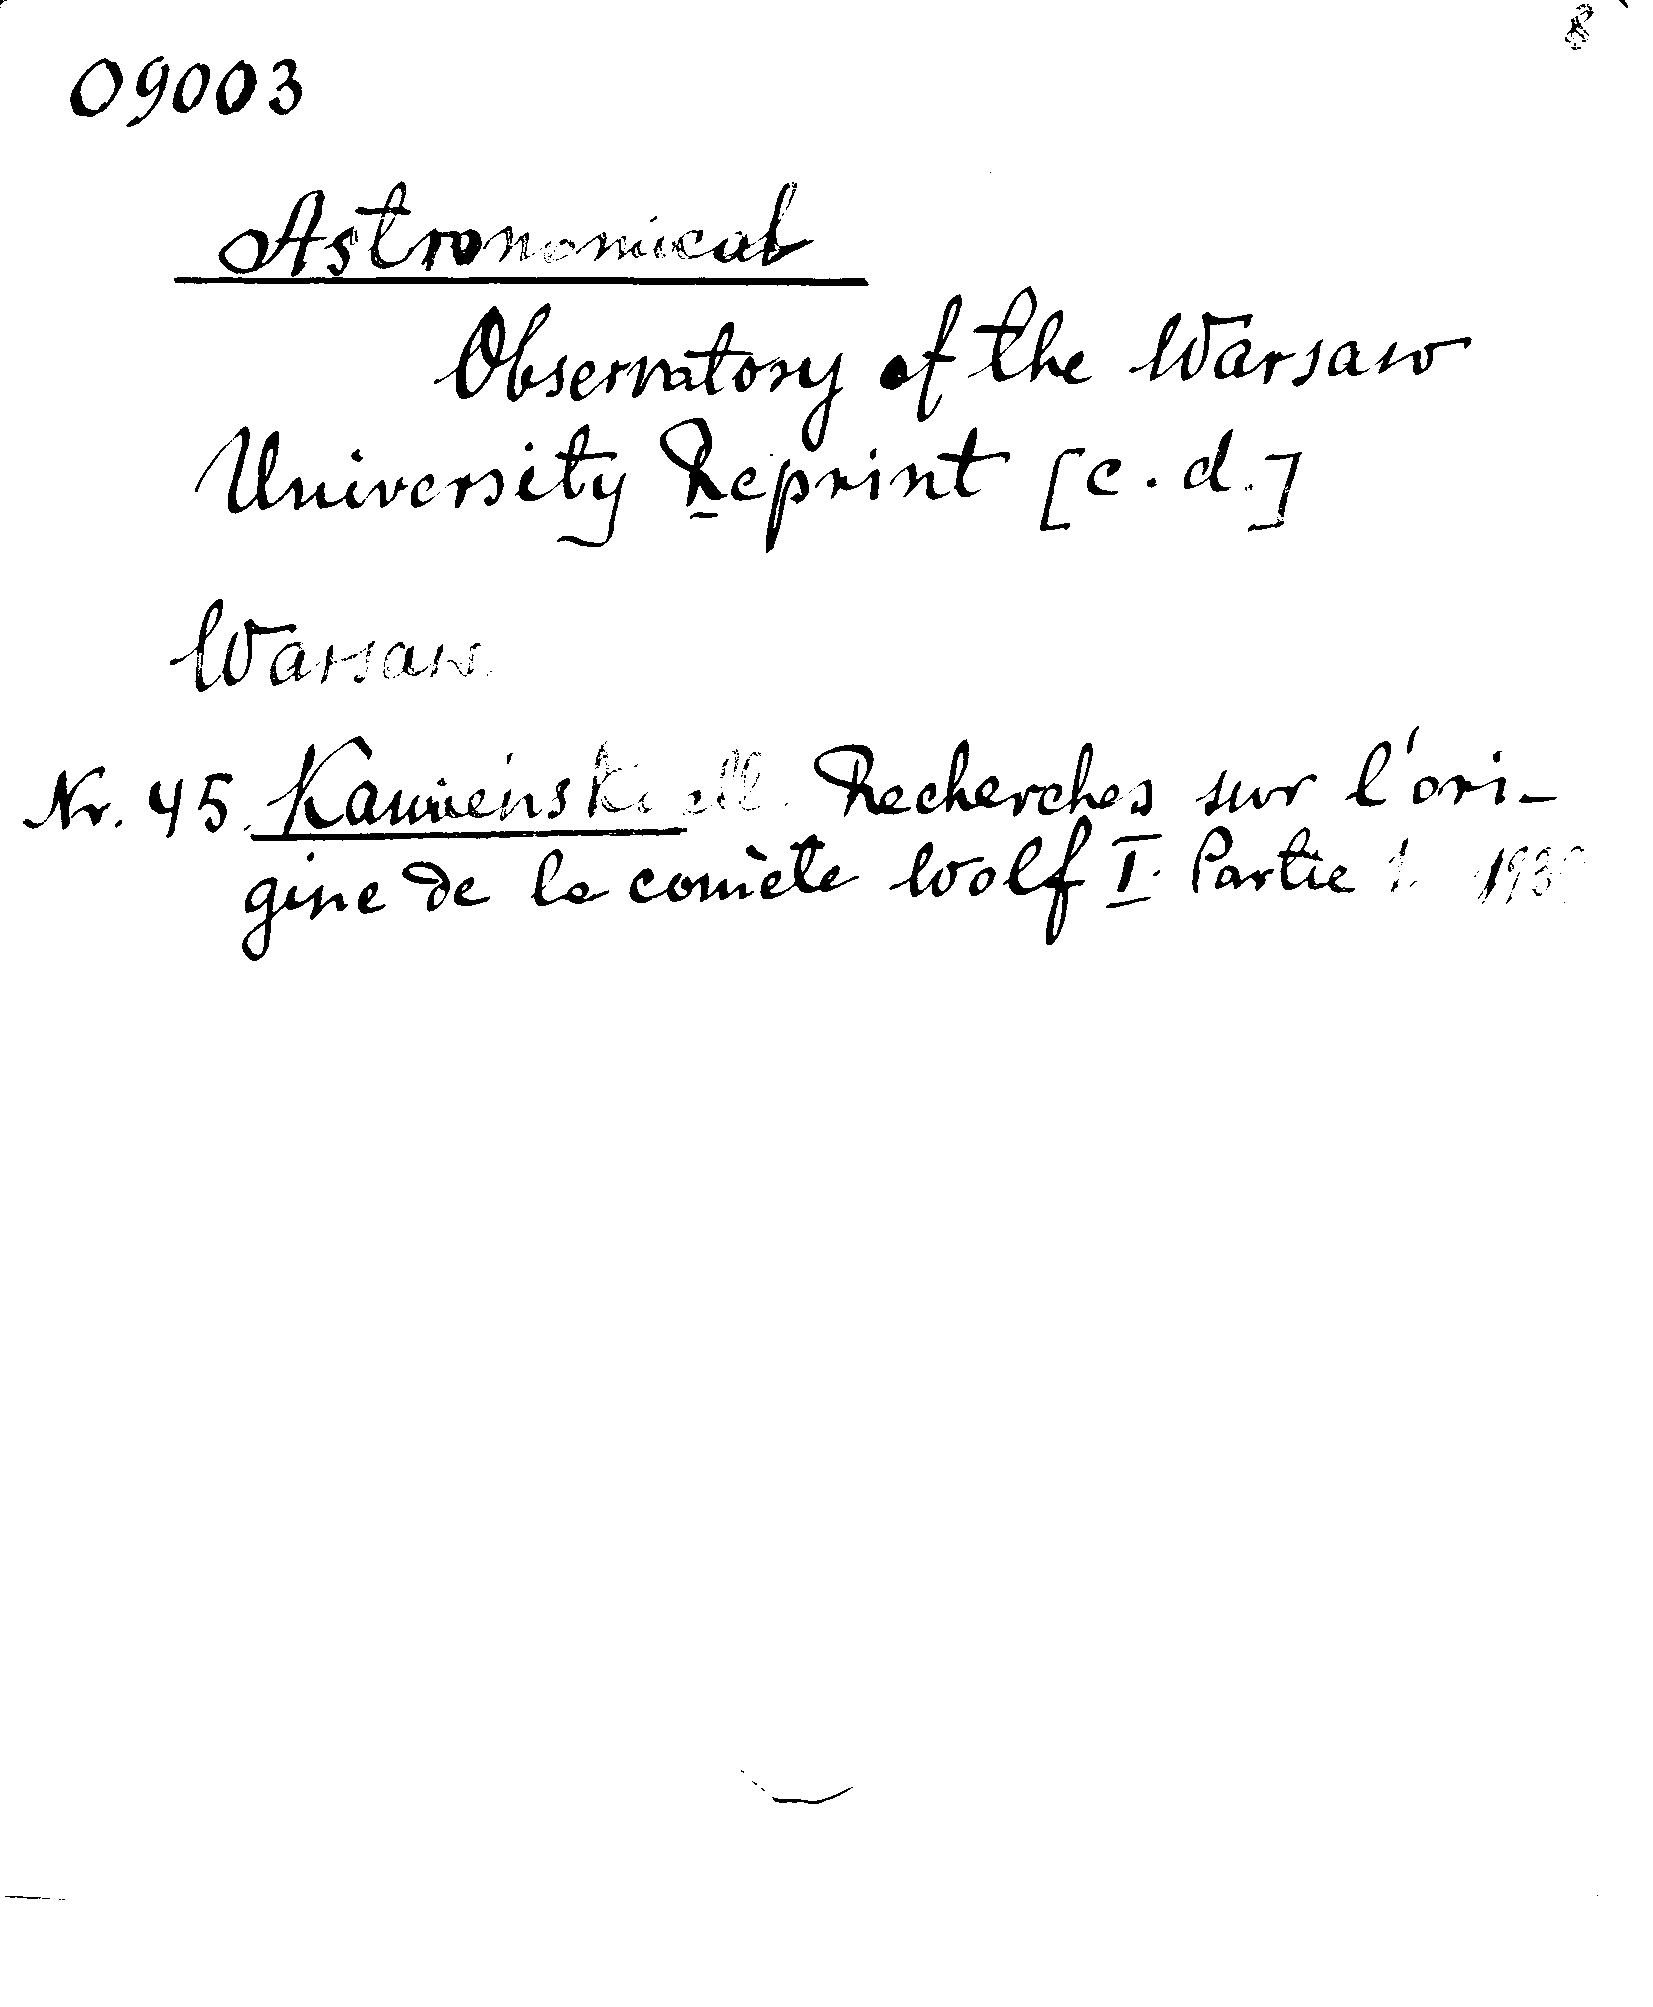 8
09003
Astronomical
Observatory of the Warsaw
University Reprint [c.d.]
Warsaw
Nr. 45. Kamieński M. Recherches sur l'ori-
gine de la comète Wolf I. Partie 1.